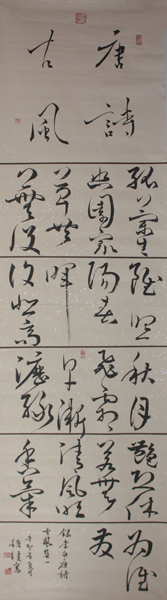 唐詩
古風
孤蘭生
幽園眾
草共
蕪沒
雖照
陽春
暉
復悲高
秋月
飛霜
早淅
瀝綠
艷恐休
若無
清風吹
香氣
為誰
發
錄李白唐詩
古風